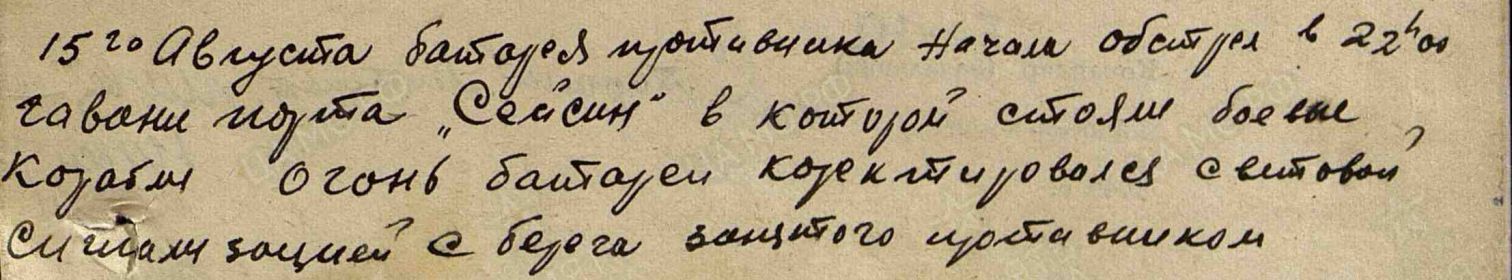 15го Августа батарея противника Начала обстрел в 22ч00
гавани порта „Сейсин" в которой стояли боевые
Корабли Огонь батареи коректировался световой
Сигнализацией с берега занятого противником